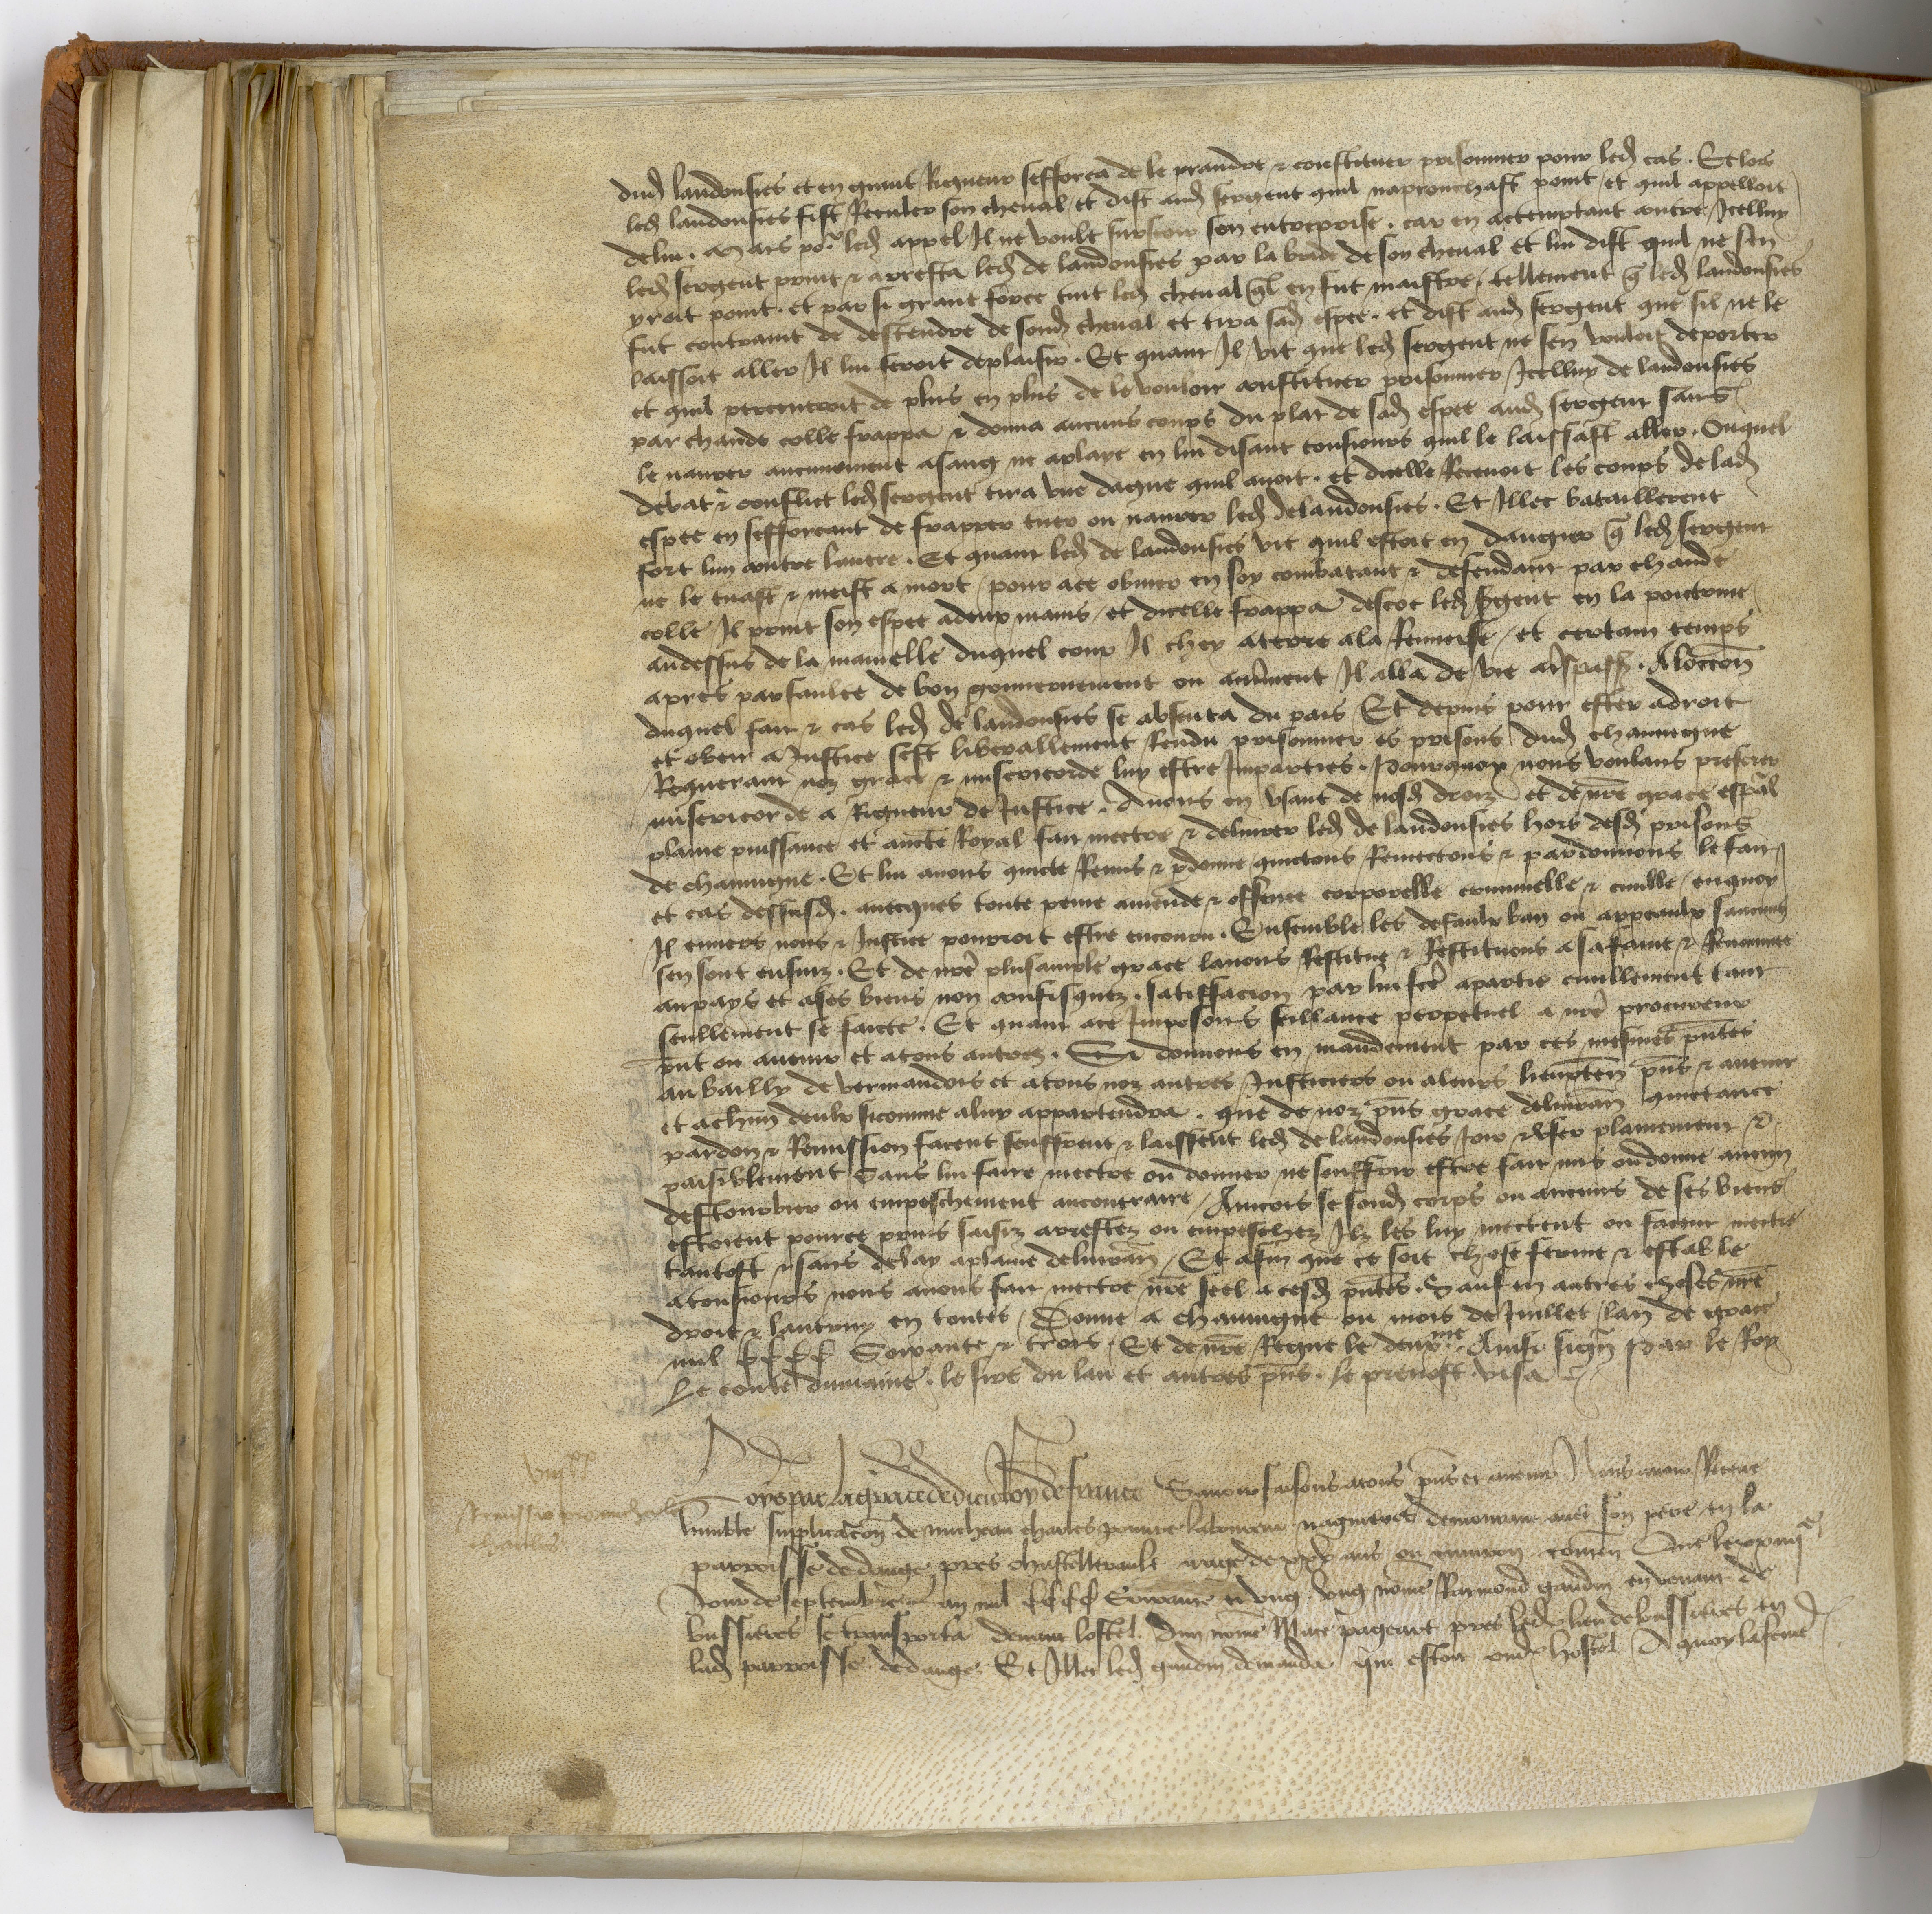 dud landousies et en grant Rigueur sefforca de le prandre & constituer prisonnier pour led cas . Et lors
led landousies fist Reculer son cheval et dist aud sergent quil naprouchast point et quil appelloit
de lui . Mais po.r led appel Il ne voult surseoir son entreprise . car en actemptant contre Icelluy
led sergent print & arresta led de landousies par la bride de son cheval et lui dist quil ne sen
yroit point . et par si grant force tint led cheval ql en fut maistre . tellement q led landousies
fut contraint de descendre de sond cheval et tira sad espee . et dist aud sergent que sil ne le
laissoit aller Il lui feroit deplaisir . Et quant Il vit que led sergent ne sen vouloit deporter
et quil perceveroit de plus en plus de le vouloir constituer prisonnier Icelluy de landousies
par chaude colle frappa & donna aucuns coups du plat de sad espee aud sergent sans
le navrer aucunement a sang ne a playe en lui disant tousiours quil le laissast aller . Ouquel
debat & conflict led sergent tira une dague quil avoit . et dicelle Recevoit les coups de lad
espee en sefforcant de frapper tuer ou navrer led de landousies . Et Illec bataillerent
fort lun contre lautre . Et quant led de landousies vit quil estoit en dangier q led sergent
ne le tuast & meist a mort / pour ace obvier en soy combatant & defendant par chaude
colle / Il print son espee a deux mains / et dicelle frappa descoc led sgent en la poictrine
au dessus de la mamelle duquel coup Il chey a terre a la Renverse / et certain temps
apres par faulte de bon gouvernement ou autrment Il alla de vie a trespassemt . A loccon
duquel fait & cas led de landousies se absenta du pais Et depuis pour ester a droit
et obeir a Justice sest liberallement Rendu prisonnier es prisons dud chauvigne
Requerant noz grace & misericorde luy estre Imparties . Pourquoy nous voulans preferer
misericorde a Rigueur de Justice . Avons en usant de nosd droiz et de nre grace espal
plaine puissance et aucte Royal fait mectre & delivrer led de landousies hors desd prisons
de chauvigne . Et lui avons quicte Remis & pdonne quictons Remectons & pardonnons le fait
et cas dessusd . avecques toute peine amende & offence corporelle criminelle & civille / en quoy
Il envers nous & Justice pourroit estre encouru . Ensemble les defaulx ban ou appeaulx saucuns
sen sont ensuiz . Et de nre plus ample grace lavons Restitue & Restituons a sa fame & Renommee
au pays et a ses biens non confisquez . satisfacion par lui fce a partie civillement tant
seullement se faicte . Et quant ace Imposons scillance perpetuel a nre procureur
pnt ou avenir et a tous autres . Si donnons en mandement par ces mesmes pntes
au bailly de vermandois et a tous noz autres Justiciers ou a leurs lieuxten pns & avenir
et a chun deulx sicomme a luy appartendra . que de noz pns grace delivran quictance
pardon & Remission facent seuffrent & laissent led de landousies Joir & user plainement &
paisiblement Sans lui faire mectre ou donner ne souffrir estre fait mis ou donne aucun
destourbier ou empeschement au contraire / Aincois se sond corps ou aucuns de ses biens
estoient pource prins saisiz arrestez ou empeschez Ilz les luy mectent ou facent mectre
tantost & sans delay a plaine delivran / Et afin que ce soit chose ferme & estable
a tousiours nous avons fait mectre nre seel a cesd pntes . Sauf en autres choses nre
droit & lautruy en toutes / Donne a chauvigne ou mois de Juillet / lan de grace
mil CCCC Soixante & trois . Et de nre Regne le deuxme . Ainsi signe Par le Roy
Le conte du maine . le sire du lau et autres pns . le prevost . visa
Loys par la grace de dieu Roy de france Savoir faisons a tous pns et avenir Nous avoir Receue
Remissio pro micheau
charles
humble supplicacon de micheau charles pouvre laboureur nagueres demourant avec son pere en la
parroisse de dange pres chastellerault aage de xxx ans ou environ . conten Que le xxiiije
Jour de septembre lan mil CCCC Soixante et ung . ung nome Raimond gaudin en venant de
bussieres se transporta devant lostel dun nome Mace pageart pres led lieu de bussieres en
lad parroisse de dange . Et Illec led gaudin demanda qui estoit oud hostel A quoy la feme